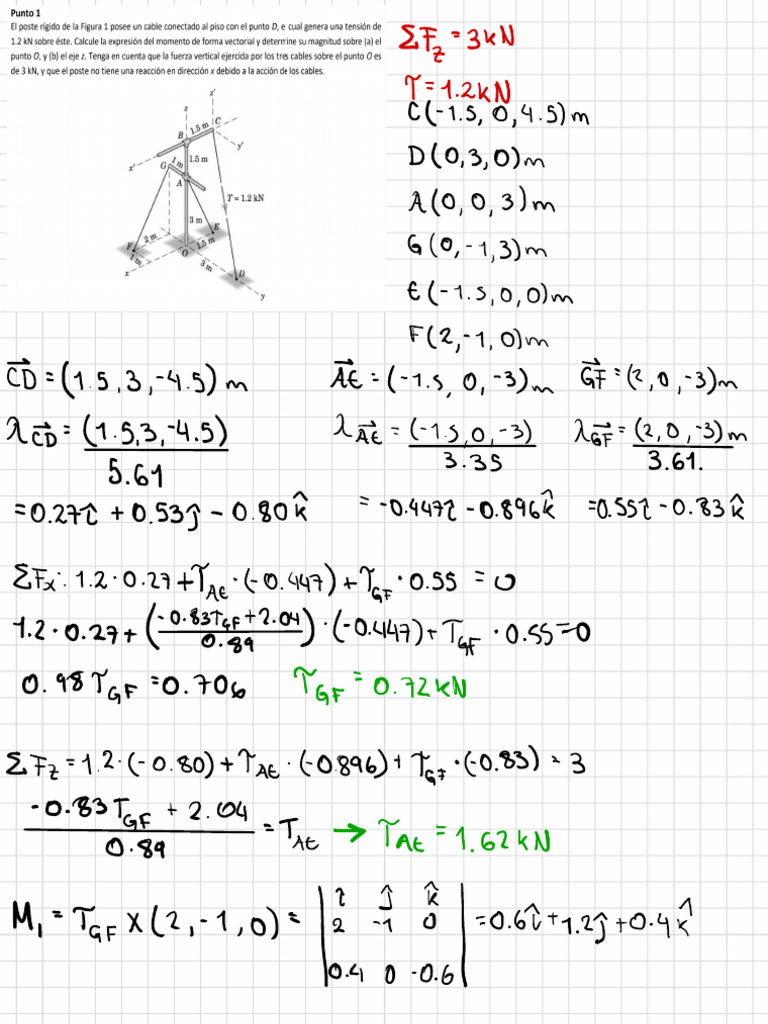 Punto 1
El poste rígido de la Figura 1 posee un cable conectado al piso con el punto D, e cual genera una tensión de
1.2 kN sobre éste. Calcule la expresión del momento de forma vectorial y determine su magnitud sobre (a) el
punto O, y (b) el eje z. Tenga en cuenta que la fuerza vertical ejercida por los tres cables sobre el punto O es
de 3 kN, y que el poste no tiene una reacción en dirección x debido a la acción de los cables.
z'
z
C
1.5 m
B
y'
1.5 m
x'
G
1 m
A
T = 1.2 kN
3 m
E
F
2 m
1.5 m
1 m
O
x
3 m
D
y
ΣF_z = 3kN
T = 1.2kN
C(-1.5, 0, 4.5)m
D(0,3,0)m
A(0,0,3)m
G(0,-1,3)m
E(-1.5,0,0)m
F(2,-1,0)m
CD = (1.5,3,-4.5)m AE = (-1.5, 0, -3)m GF = (2,0,-3)m
λ_CD = (1.5,3,-4.5) / 5.61 λ_AE = (-1.5,0,-3) / 3.35 λ_GF = (2,0,-3)m / 3.61.
= 0.27î + 0.53ĵ - 0.80k̂ = -0.447î - 0.896k̂ = 0.55î - 0.83k̂
ΣFx: 1.2·0.27 + T_AE·(-0.447) + T_GF·0.55 = 0
1.2·0.27 + ((-0.83T_GF + 2.04) / 0.89)·(-0.447) + T_GF·0.55 = 0
0.98T_GF = 0.706 T_GF = 0.72kN
ΣF_z = 1.2·(-0.80) + T_AE·(-0.896) + T_GF·(-0.83) = 3
(-0.83T_GF + 2.04) / 0.89 = T_AE → T_AE = 1.62kN
M_1 = T_GF × (2,-1,0) = | î ĵ k̂ | = 0.6î + 1.2ĵ + 0.4k̂
2 -1 0
0.4 0 -0.6